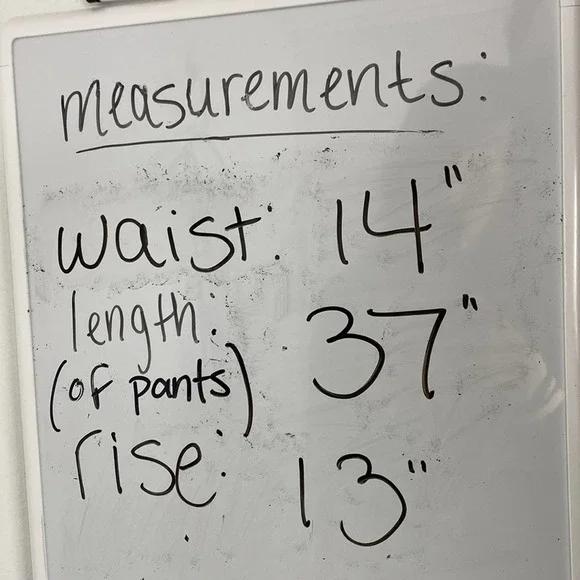 measurements:
waist: 14"
length: 37"
(of pants)
rise: 13"